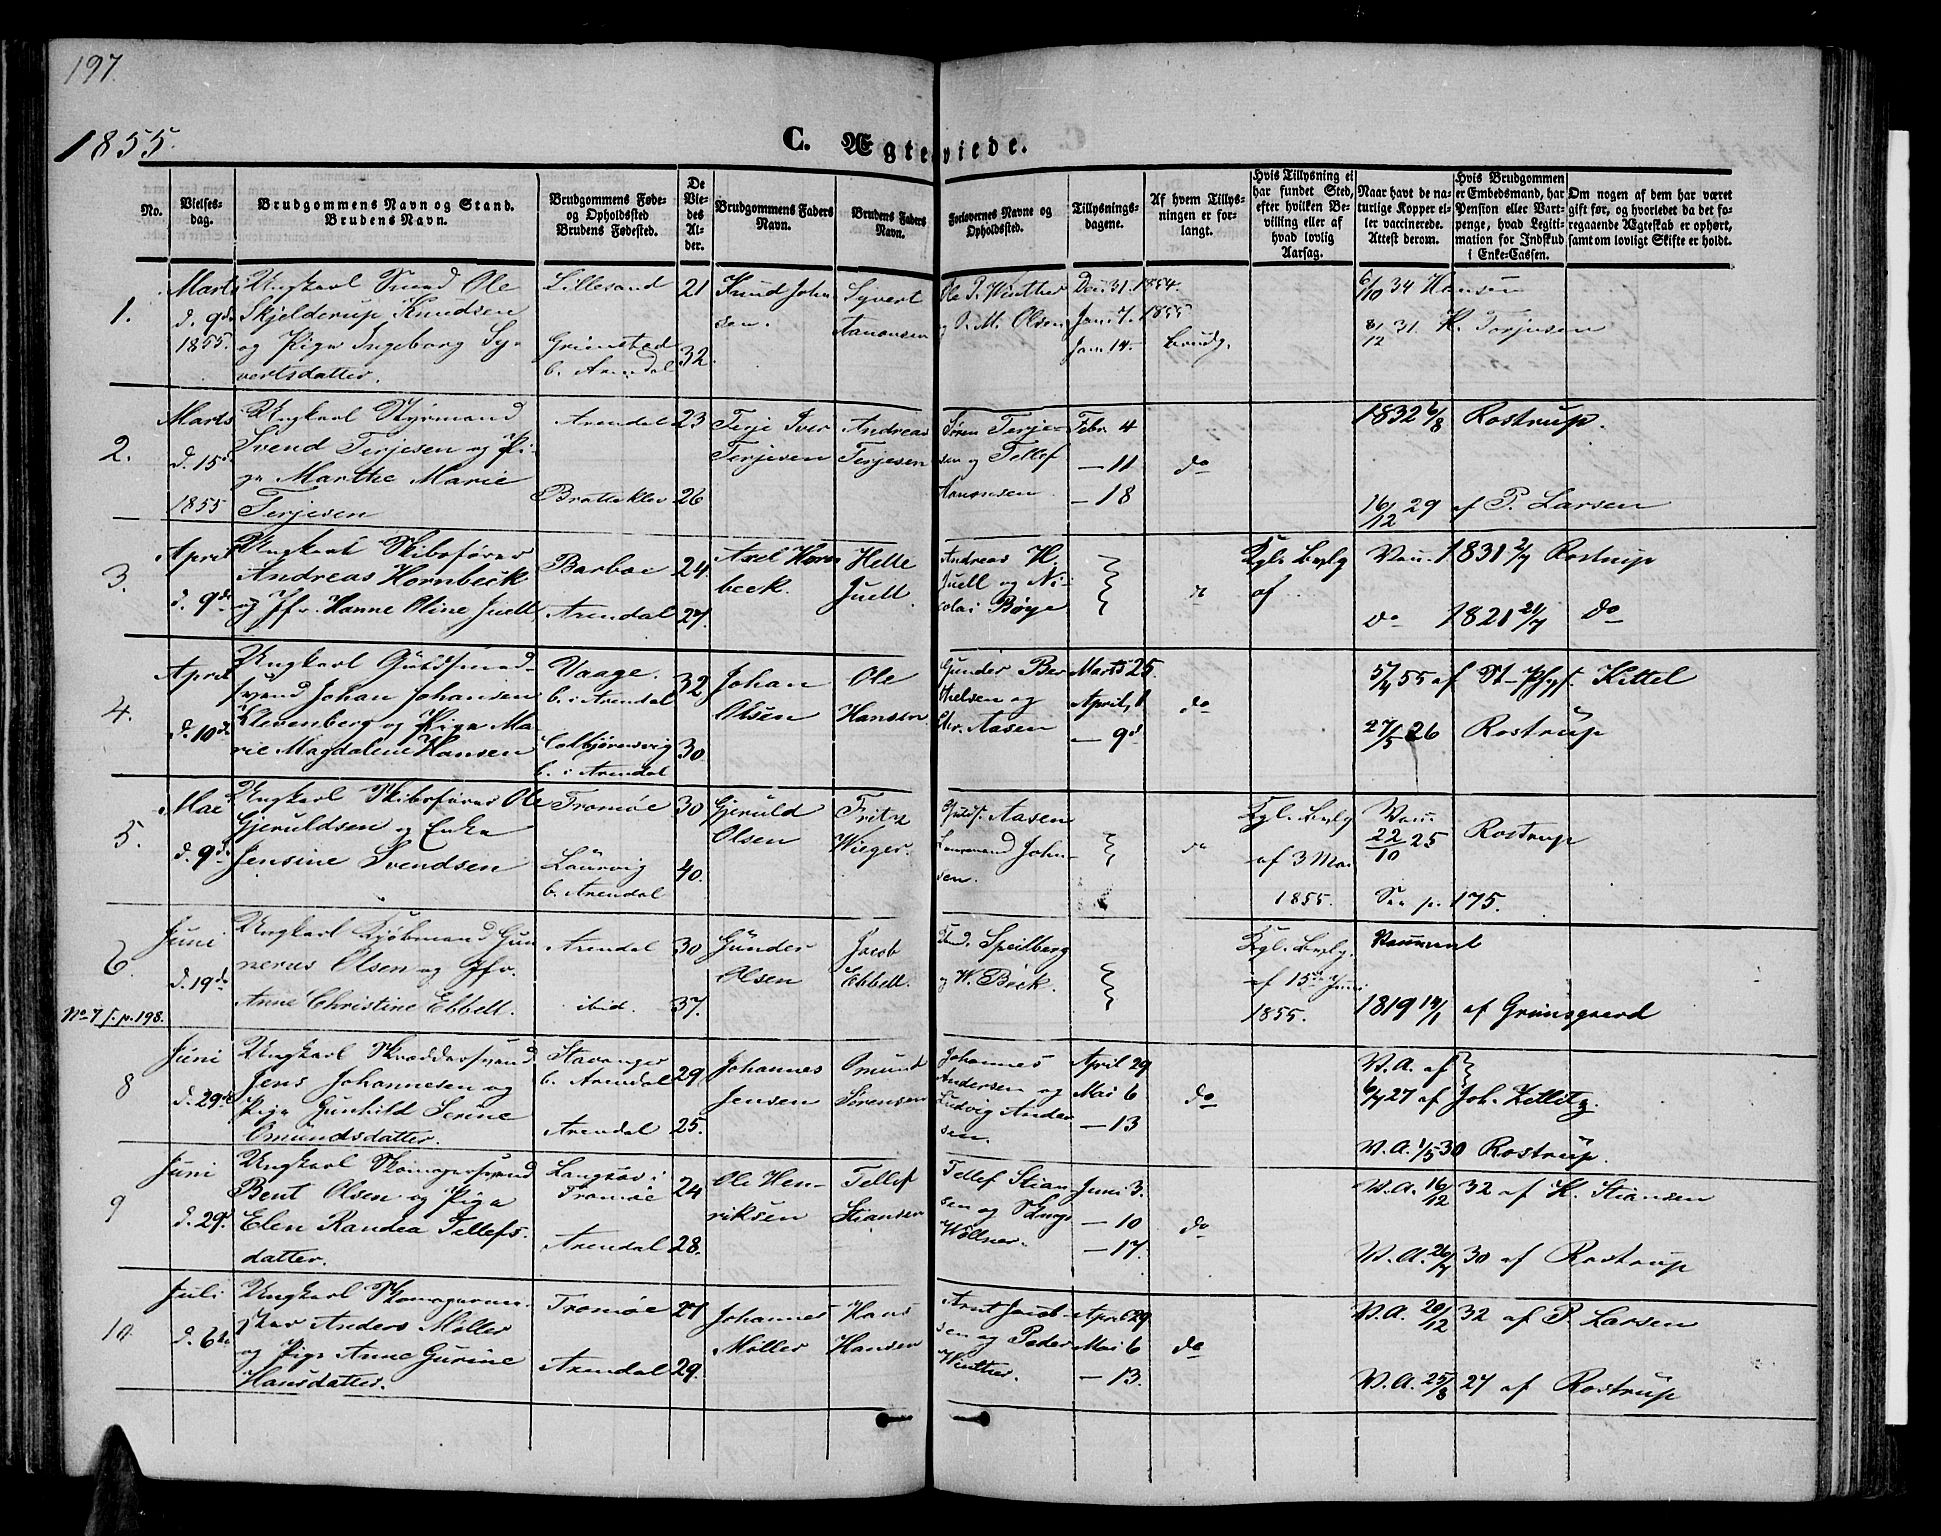 197.
1855.
C. Ægteviede.
No.
Vielsesdag.
Brudgommens Navn og Stand.
Brudens Navn.
Brudgommens Føde- og Opholdsted
Brudens Fødested.
De Viedes Alder.
Brudgommens Faders Navn.
Brudens Faders Navn.
Forlovernes Navne og Opholdssted.
Tillysningsdagene.
Af hvem Tillysningen er forlangt.
Hvis Tillysning ei har fundet Sted, efter hvilken Bevilling eller af hvad lovlig Aarsag.
Naar havt de naturlige Kopper eller vaccinerede. Attest derom.
Hvis Brudgommen er Embedsmand, har Pension eller Vartpenge, hvad Legitimation for Indskud i Enke-Cassen.
Om nogen af dem har været gift før, og hvorledet da det foregaaende Ægteskab er ophørt, samt om lovligt Skifte er holdt.
1.
Marts d. 9de 1855.
Ungkarl Ole
Skjelderup Knudsen
og Pige Ingeborg Sy-
vertsdatter.
Lillesand
Grimstad
b. Arendal
21
32.
Knud John
sen.
Syvert
Aanonsen
Ole P. Winther
og O. M. Olsen
Dec. 31. 1854.
Jan. 7. 1855
Jan. 14.
Brudg.
6/10 34 Hansen
31/12 31. K. Terjesen
2.
Marts d. 15de 1855
Ungkarl Styrmand
Svend Terjesen og Pi-
ge Marthe Marie
Terjesen
Arendal
Bratteklev
23
26
Terje Iver
Terjesen
Andreas
Terjesen
Søren Terje-
sen og Tellef
Aanonsen
Febr. 4
— 11
— 18
do
1832 6/8 Rostrup.
16/12 29 af P. Larsen
3.
April d. 9de
Ungkarl Skibsfører
Andreas Hornbeck
og Jfr. Hanne Oline Juell
Barboe
Arendal
24.
27.
Axel Horn
beck.
Helle
Juell.
Andreas H.
Juell og Ni-
colai Bøye
do
Kgl. Bevlg
af
Vacc. 1831 2/7 Rostrup
do 1821 21/7 do
4.
April d. 10de
Ungkarl Guldsmed-
svend Johan Johansen
Klevenberg og Pige Ma-
rie Magdalene Hansen
Vaage.
b. i Arendal
Colbjørnsvig
b. i Arendal
32
30
Johan
Olsen
Ole
Hansen
Gunder Ber
thelsen og
Chr. Aasen
Marts 25.
April, 1
— 9de
do
5/4 55 af St. Phys. Kittel
27/5 26 Rostrup
5.
Mai d. 9de
Ungkarl Skibsfører Ole
Gjeruldsen og Enke
Jensine Svendsen
Tromøe
Laurvig
b. Arendal
30
40.
Gjeruld
Olsen
Fritz
Wieger.
Guldsm. Aasen
John-
sen.
do
Kgl. Bevlg
af 3 Mai
1855.
Vacc.
22/10 25 Rostrup
See p. 175.
6.
Juni d. 19de
Ungkarl Kjøbmand Gun
nerus Olsen og Jfr.
Anne Christine Ebbell
Arendal
ibid.
30
37.
Gunder
Olsen
Jacob
Ebbell.
Speilberg
og W. Beck.
Kgl. Bevlg.
af 15de Juni
1855.
Vaccineret
1819 14/1 af Grunsgaard
No 7 s. p. 198.
8
Juni d. 29de
Ungkarl Skræddersvend
Jens Johannesen og
Pige Gunhild Serine
Omundsdatter.
Stavanger
b. Arendal
Arendal
29.
25.
Johannes
Jensen
Omund
Sørensen
Johannes
Andersen og
Ludvig Ander
sen.
April 29
Mai 6
— 13
do
V.A. af
6/7 27 af Joh. Zetlitz.
V.A. 1/5 30 Rostrup.
9
Juni d. 29de
Ungkarl Skomagersvend
Bent Olsen og Pige
Elen Randea Tellefs-
datter.
Langsæv i
Tromøe
Arendal
24
28.
Ole Hen-
riksen
Tellef
Stiansen
Tellef Stian
sen og
Wøllner.
Juni 3.
— 10
— 17.
do
V.A. 16/12 32 af K. Stiansen
V.A. 26/7 30 af Rostrup
10
Juli d. 6te
Ungkarl Skomagerme-
ster Anders Møller
og Pige Anne Gurine
Hansdatter.
Tromøe
Arendal
27
29.
Johannes
Møller
Hans
Hansen
Arnt Jacob-
sen og Peder
Winther.
April 29
Mai 6
— 13.
do
V.A. 20/12 32 af P. Larsen
V.A. 25/8 27 af Rostrup